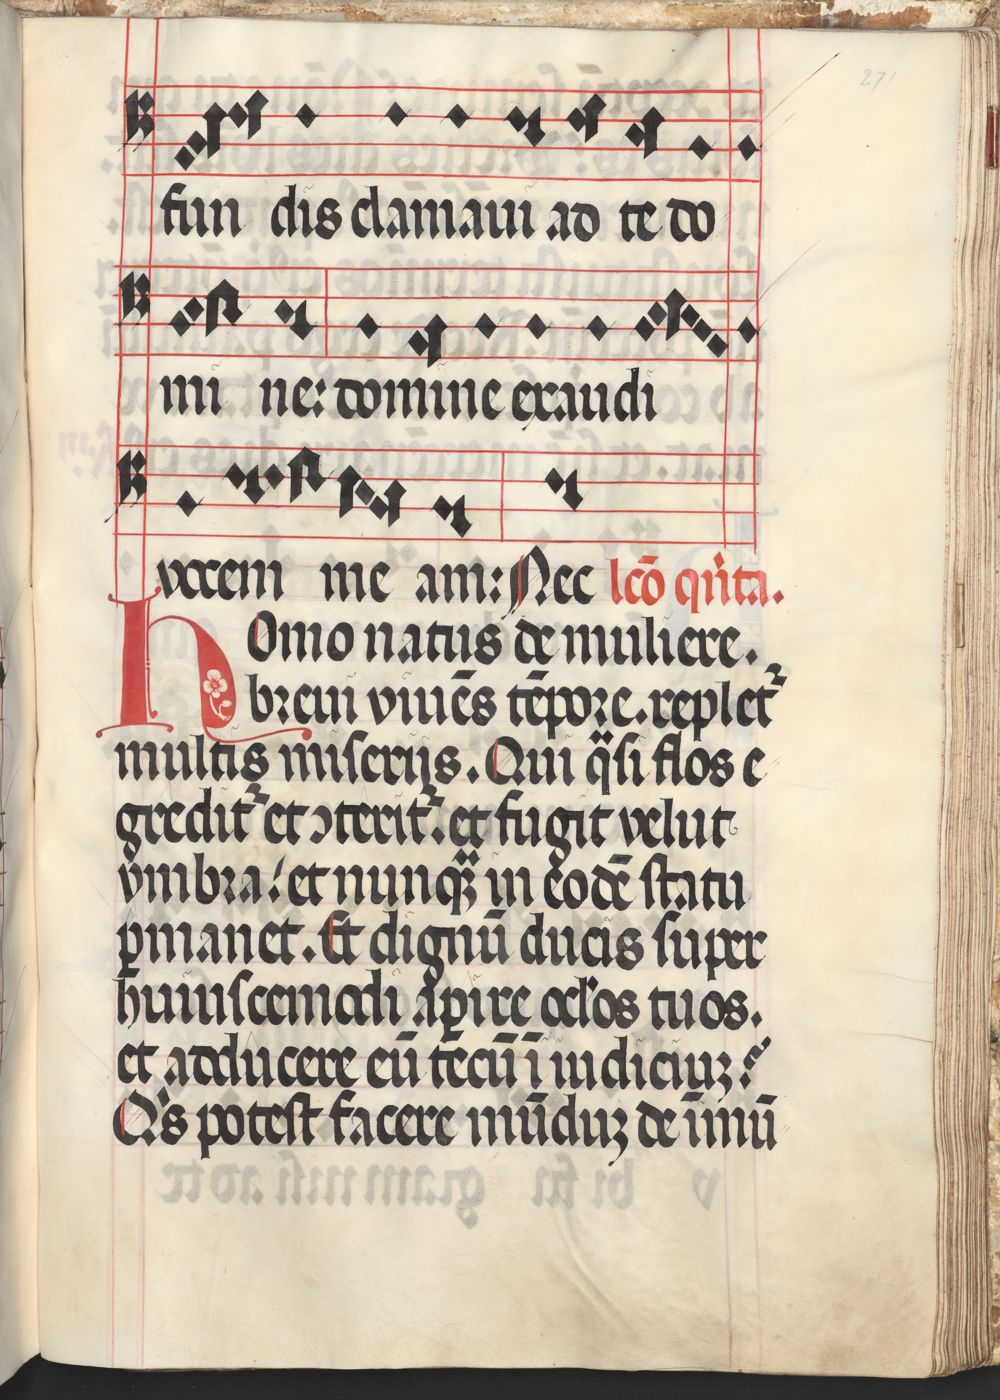 271
fun dis clamaui ad te do
mi ne: domine exaudi
vocem me am: Nec lcō qrīta.
Homo natus de muliere.
breui viuēs tēpore. replet᷑
multis miserijs. Qui q̈si flos e
gredit᷑ et ꝯterit᷑. et fugit velut
vmbra: et nunq̈ꝫ in eodē statu
ꝑmanet. Et dignū ducis super
huiuscemodi aꝑire ocl'os tuos.
et adducere eū tēcū ī iudiciuꝫ?
Q's potest facere mūduꝫ de īmū